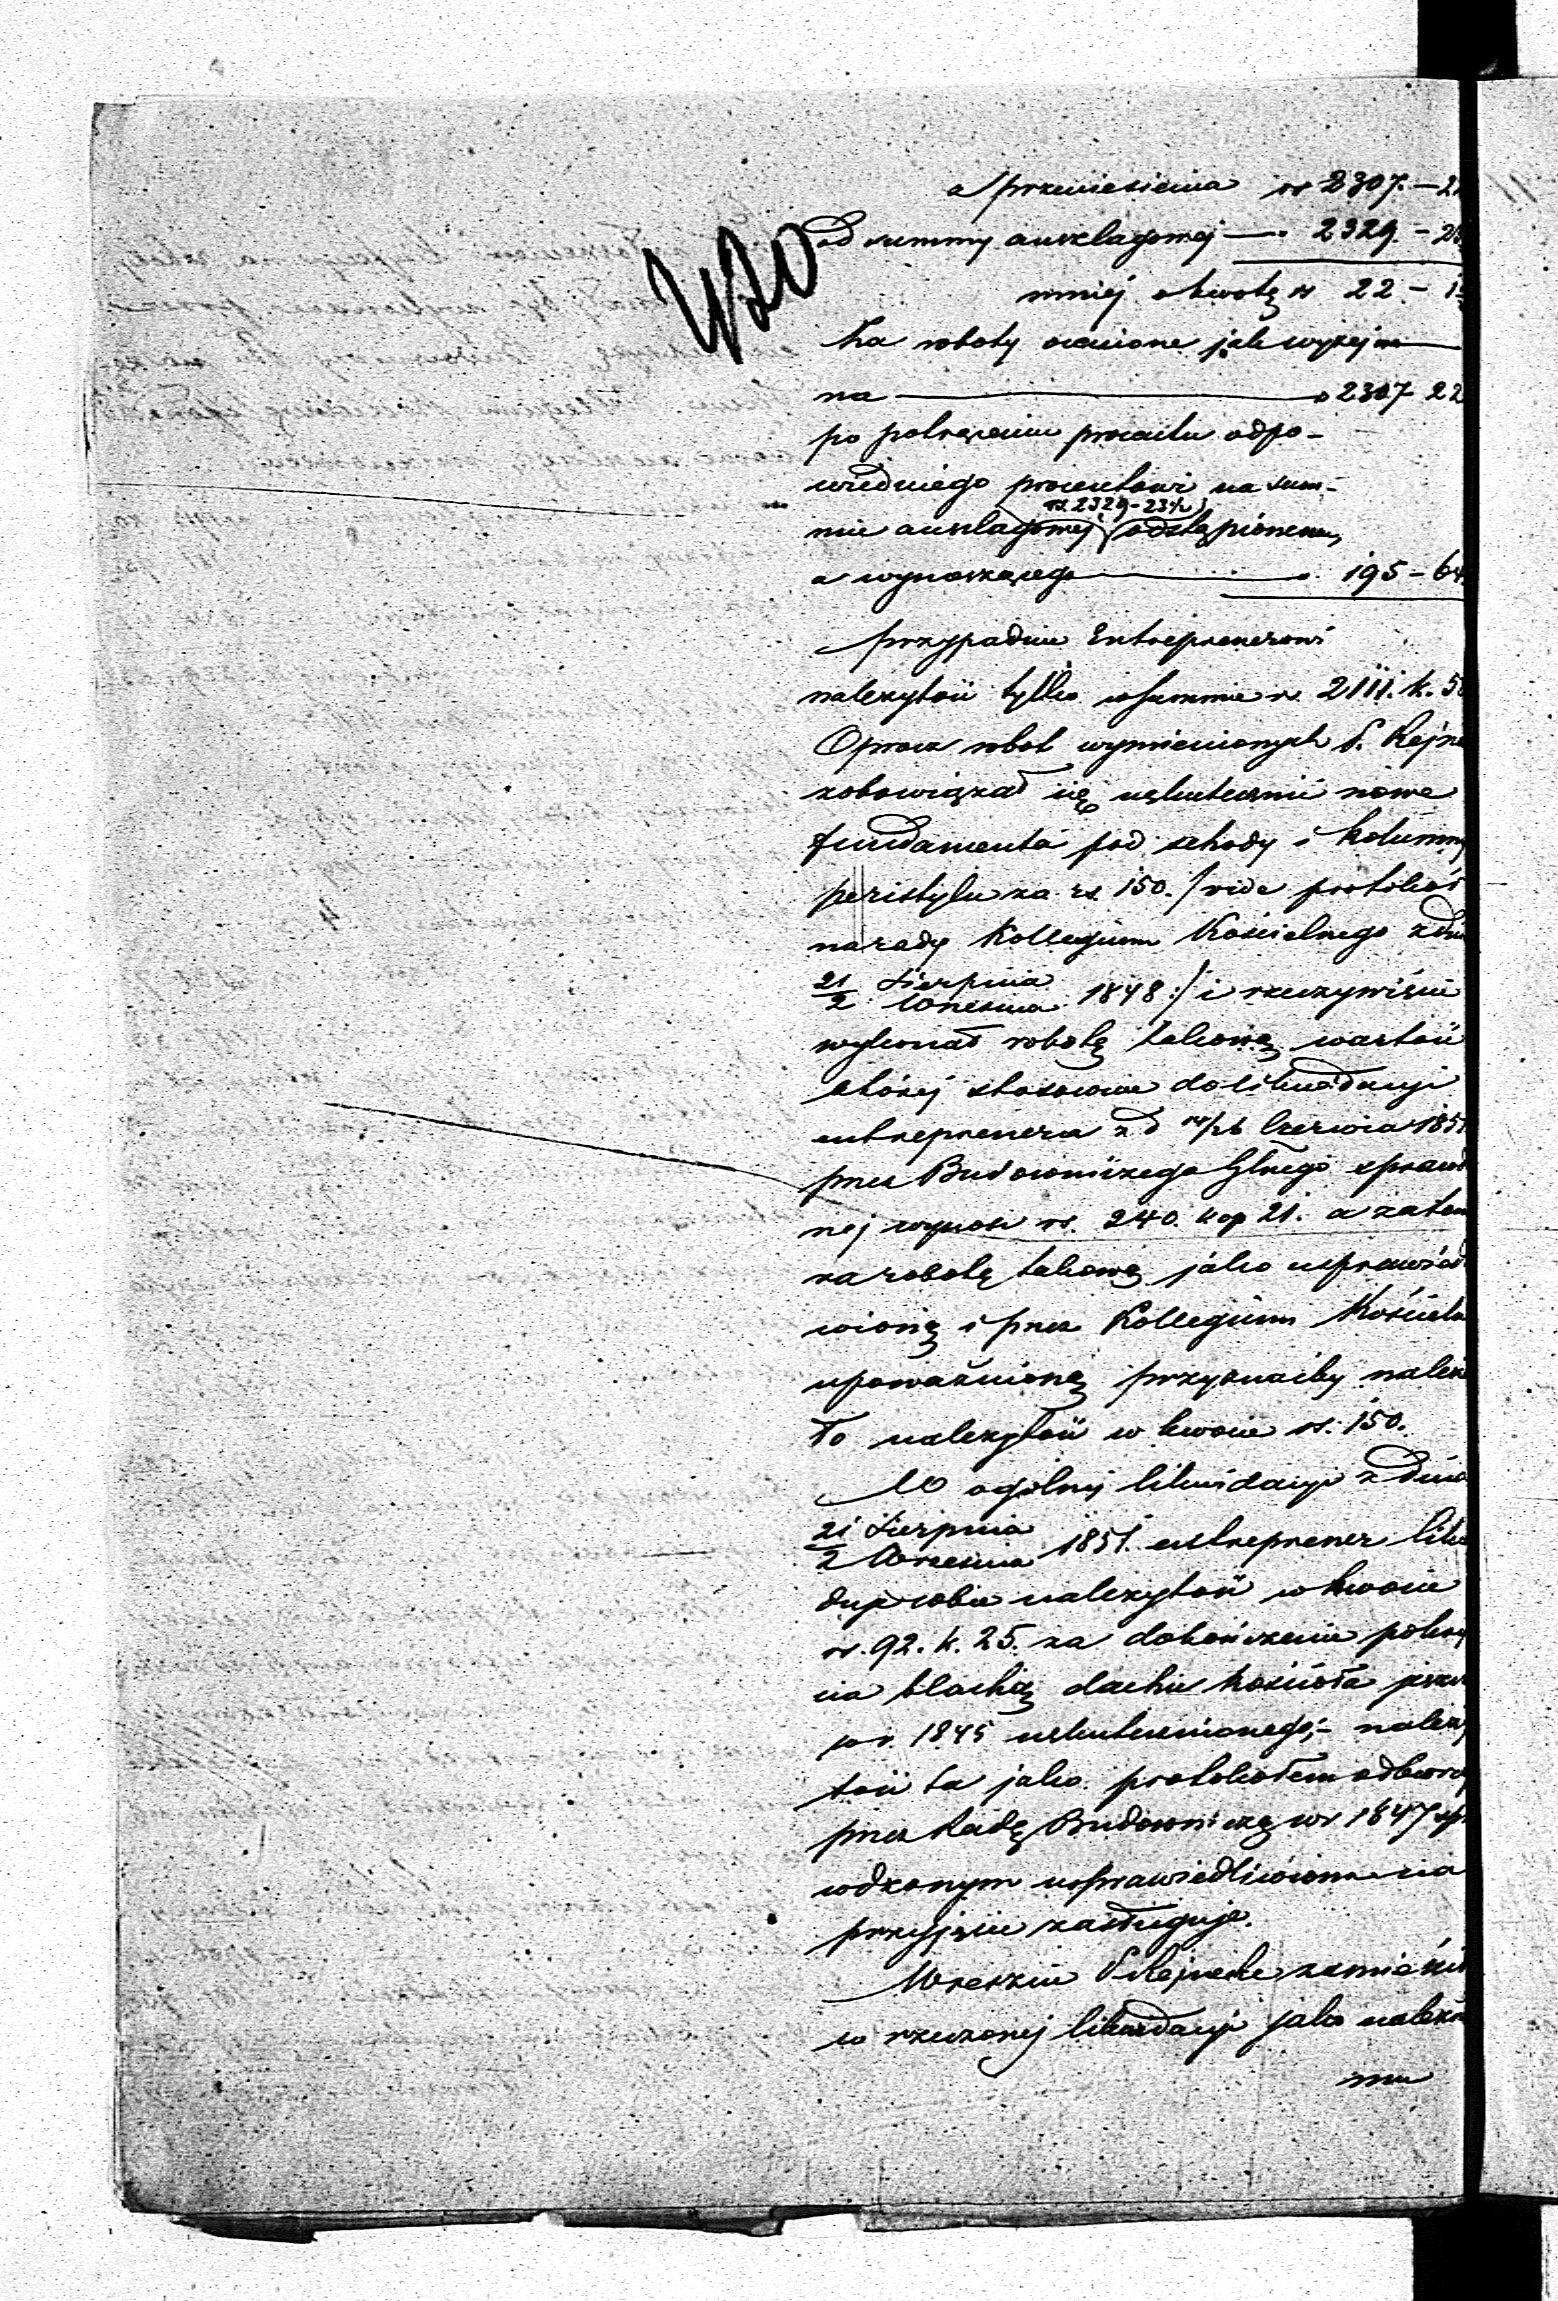 420
z przeniesienia rs 2307.—22
od summy anszlagowej — 2329.—23
mniej o kwotę rs 22 — 1
Za roboty ocenione jak wyżej
na — 2307 22
po potrąceniu procentu odpo-
wiedniego procentowi na sum-
rs 2329-23½
mie anszlagowej odstąpionemu,
a wynoszącego — 195—64
przypadnie Entreprenerowi
należytość tylko w summie rs. 2111. k. 5
Oprócz robot wymienionych P. Rejne
zobowiązał się uskutecznić nowe
fundamenta pod schody i kolumny
peristylu za rs. 150. /vide protokół
narady Kollegium Kościelnego z dnia
21/2 Sierpnia/Września 1848:/ i rzeczywiście
wykonał robotę takową wartość
której stosownie do likwidacji
entreprenera z d 14/26 Czerwca 185
przez Budowniczego Głnego sprawdzo
nej wynosi rs. 240. kop 21. a zatem
za robotę takową jako usprawiedli
wioną i przez Kollegium Kościelne
upoważnioną przyznaćby należa
ło należytość w kwocie rs. 150.
W ogólnej likwidacji z dnia
21/2 Sierpnia/Września 1851. entreprener likwi
duje sobie należytość w kwocie
rs. 92. k. 25. za dokończenie pokry
cia blachą dachu kościoła jeszcze
w r. 1845 uskutecznionego;- należy
tość ta jako protokołem odbiorczym
przez Radę Budowniczą w r 1847 spra
wdzonym usprawiedliwiona na
przyjęcie zasługuje.
Wreszcie P. Rejneke zamieścił
w rzeczonej likwidacji jako należną
mu